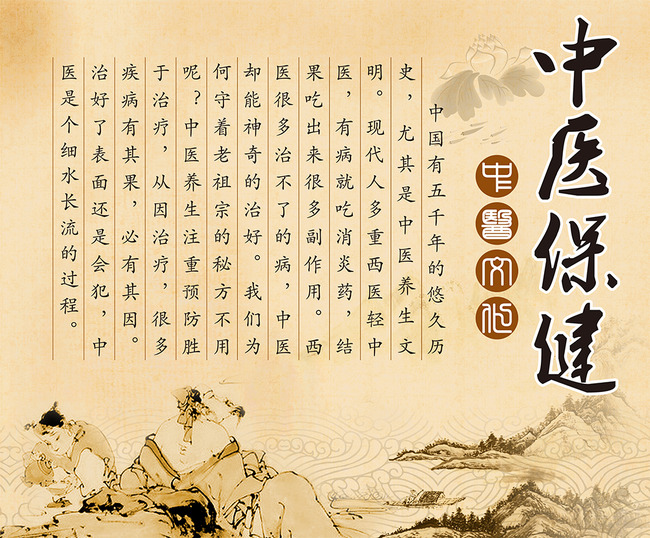 中医保健
中醫文化
中国有五千年的悠久历
史，尤其是中医养生文
明。现代人多重西医轻中
医，有病就吃消炎药，结
果吃出来很多副作用。西
医很多治不了的病，中医
却能神奇的治好。我们为
何守着老祖宗的秘方不用
呢？中医养生注重预防胜
于治疗，从因治疗，很多
疾病有其果，必有其因。
治好了表面还是会犯，中
医是个细水长流的过程。